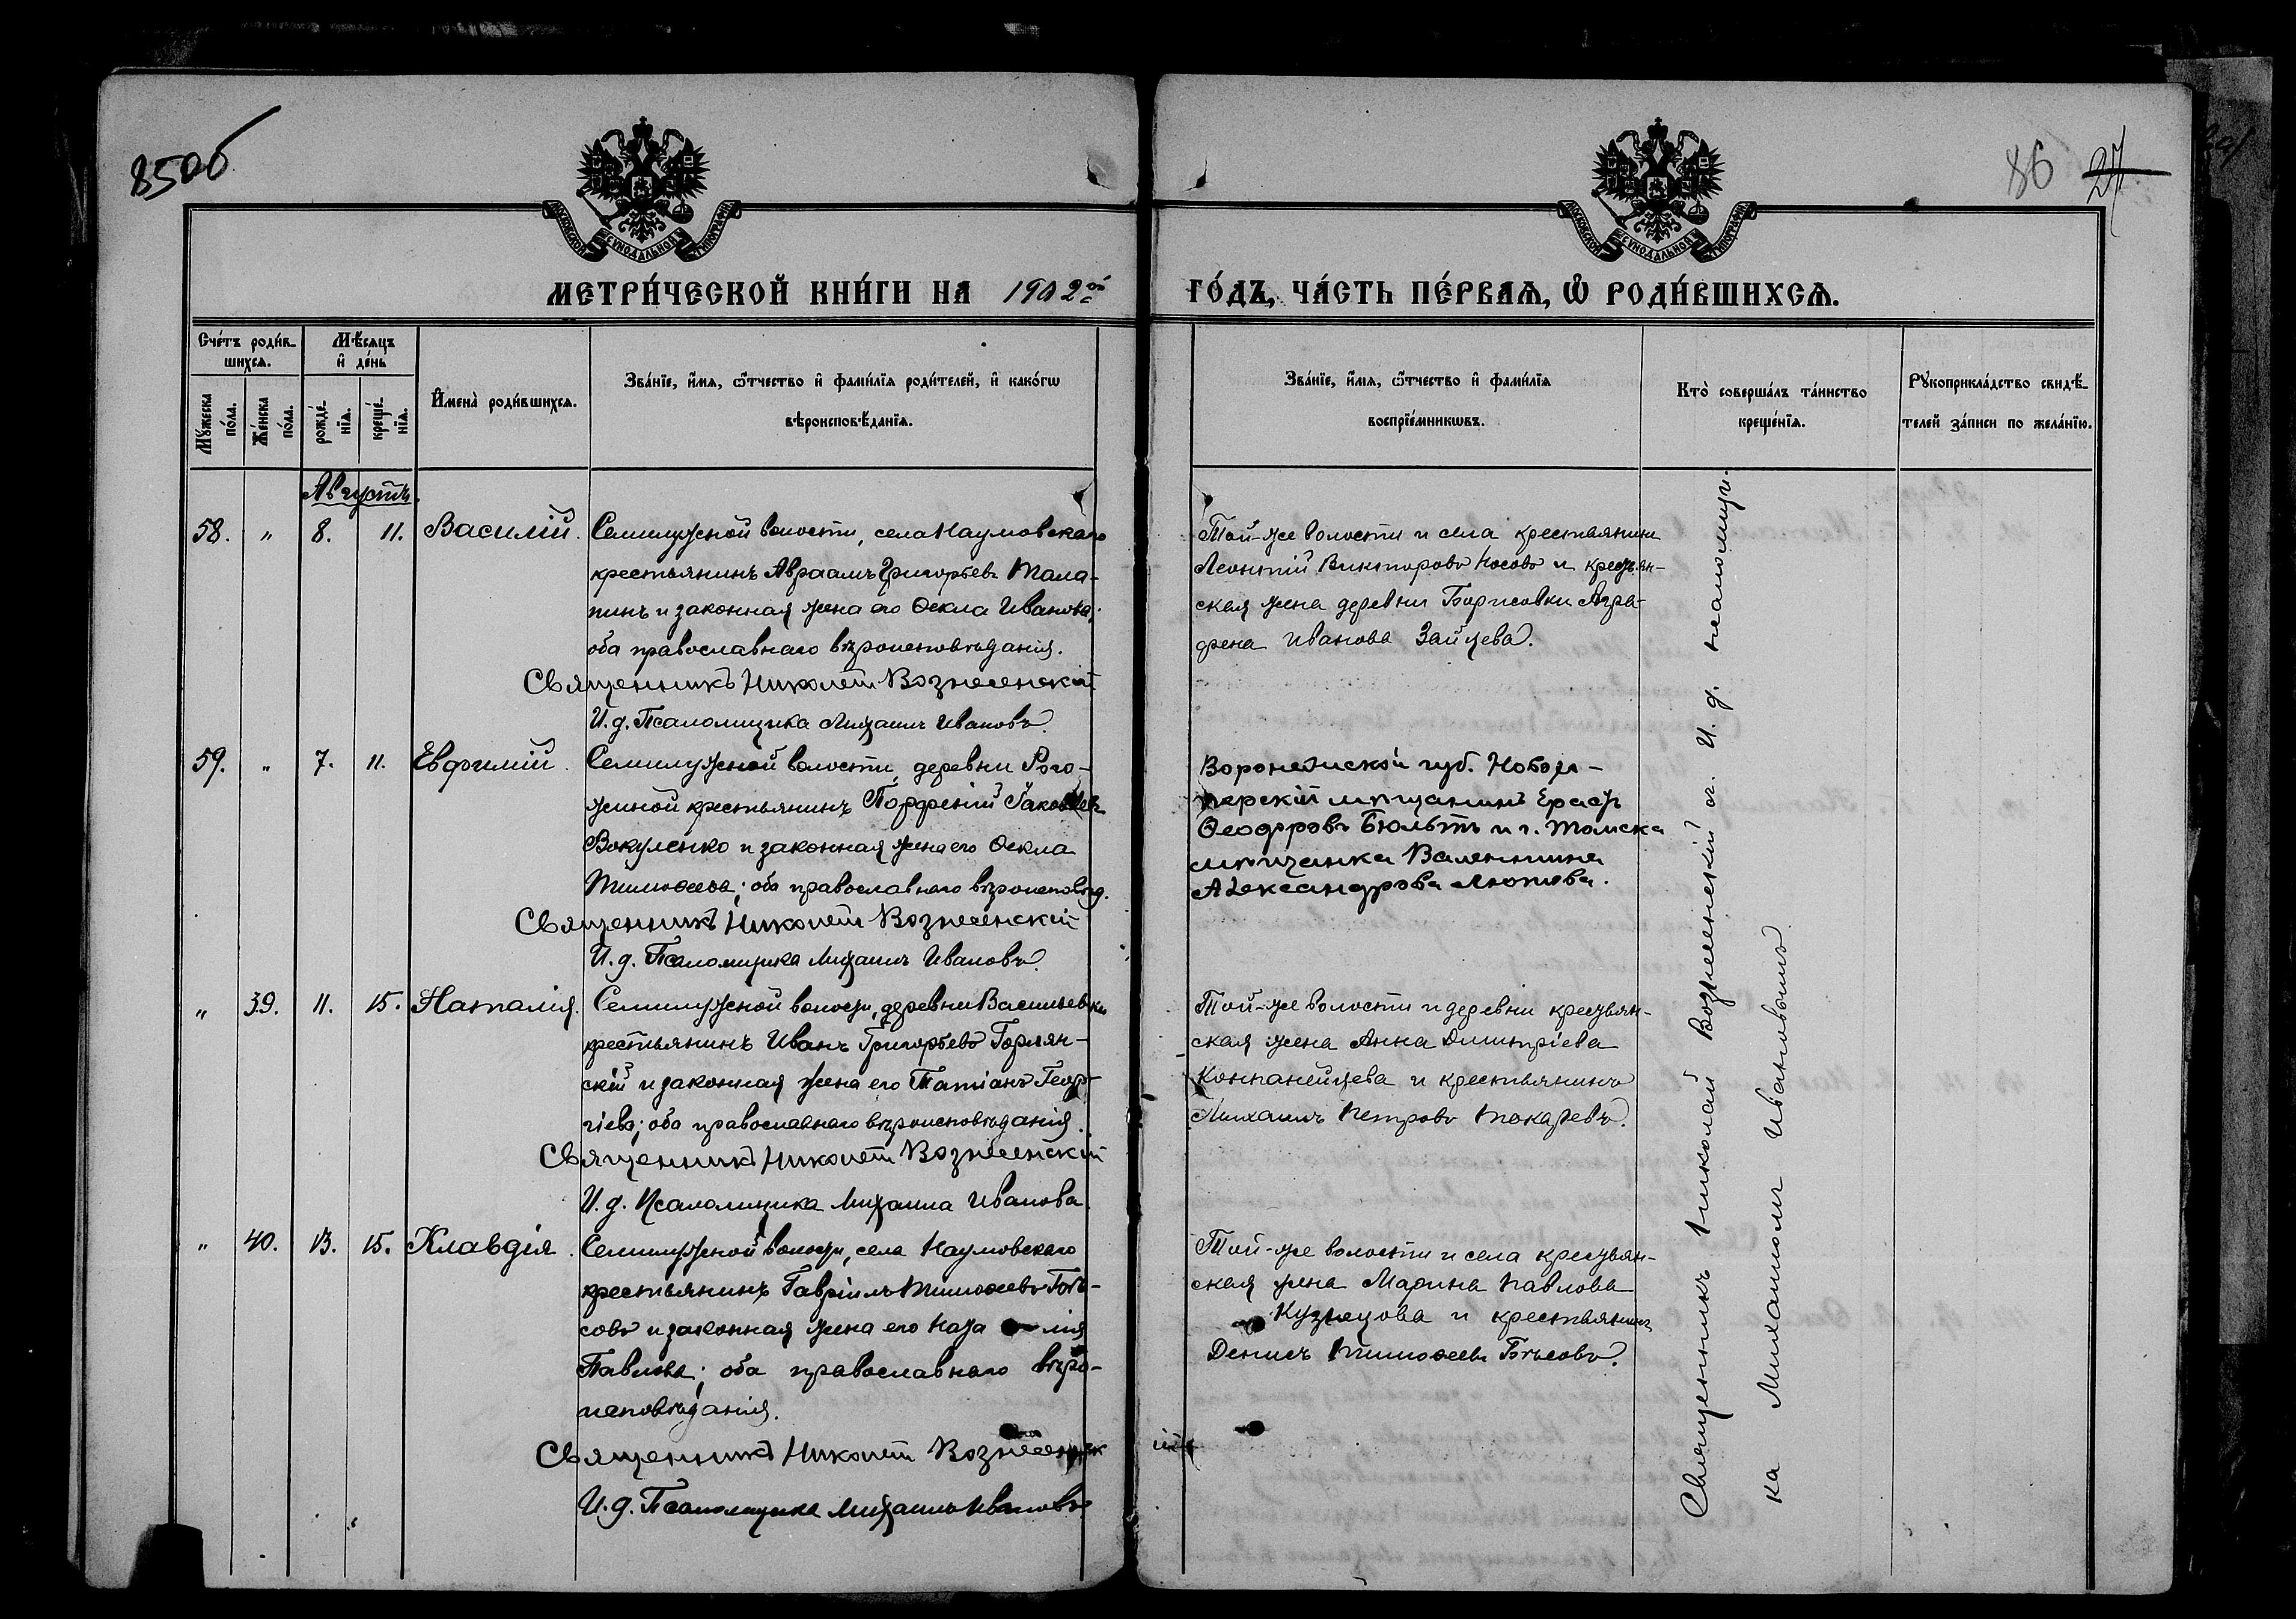 85об
86 27
МОСКОВСКОЙ СѴНОДАЛЬНОЙ ТИПОГРАФІИ
МОСКОВСКОЙ СѴНОДАЛЬНОЙ ТИПОГРАФІИ
МЕТРИ́ЧЕСКОЙ КНИ́ГИ НА 1902ой ГО́ДЪ, ЧА́СТЬ ПЕ́РВАѦ, Ѡ҆ РОДИ́ВШИХСѦ.
Сче́тъ роди́в-
шихсѧ.
Мꙋ́жеска по́ла.
Же́нска по́ла.
Мѣ́сѧцъ
и҆ де́нь
рожде́-
нїѧ.
креще́-
нїѧ.
И҆мена̀ роди́вшихсѧ.
Зва́нїе, и҆́мѧ, ѻ҆́тчество и҆ фами́лїѧ роди́телей, и҆ како́гѡ
вѣроисповѣ́данїѧ.
Зва́нїе, и҆́мѧ, ѻ҆́тчество и҆ фами́лїѧ
воспрїе́мникѡвъ.
Кто̀ соверша́лъ та́инство
креще́нїѧ.
Рꙋкоприкла́дство свидѣ́-
телей за́писи по жела́нїю.
Августъ.
58. " 8. 11. Василій. Семилужной волости, села Наумовскаго
крестьянинъ Авраамъ Григорьевъ Тала-
нинъ и законная жена его Ѳекла Иванова;
оба православнаго вѣроисповѣданія.
Священникъ Николай Вознесенскій
И. д. Псаломщика Михаилъ Ивановъ.
Той-же волости и села крестьянинъ
Леонтій Викторовъ Носовъ и крестьян-
ская жена деревни Борисовки Агра-
фена Иванова Зайцева.
59. " 7. 11. Евфимій. Семилужной волости, деревни Рого-
жиной крестьянинъ Порфирій Іаковлевъ
Вакуленко и законная жена его Ѳекла
Тимоѳеева; оба православнаго вѣроисповѣд.
Священникъ Николай Вознесенскій
И. д. Псаломщика Михаилъ Ивановъ.
Воронежской губ. Новохо-
перскій мѣщанинъ Ерасть
Ѳеодоровъ и г. Томска
мѣщанка Валентина
Александрова Лютова.
" 39. 11. 15. Наталія. Семилужной волости, деревни Васильевки
крестьянинъ Иванъ Григорьевъ Горлян-
скій и законная жена его Татіана Геор-
гіева; оба православнаго вѣроисповѣданія.
Священникъ Николай Вознесенскій
И. д. Псаломщика Михаилъ Иванова.
Той-же волости и деревни крестьян-
ская жена Анна Димитріева
Компанейцева и крестьянинъ
Михаилъ Петровъ Токаревъ.
" 40. 13. 15. Клавдія. Семилужной волости, села Наумовскаго
крестьянинъ Гавріилъ Тимоѳеевъ Бѣ-
совъ и законная жена его Ната лія
Павлова; оба православнаго вѣро-
исповѣданія.
Священникъ Николай Вознесенскій
И. д. Псаломщика Михаилъ Ивановъ
Той-же волости и села крестьян-
ская жена Марина Павлова
Кузнецова и крестьянинъ
Денисъ Тимоѳеевъ Бѣсовъ.
Священникъ Николай Вознесенскій съ И. д. псаломщи-
ка Михаиломъ Ивановымъ